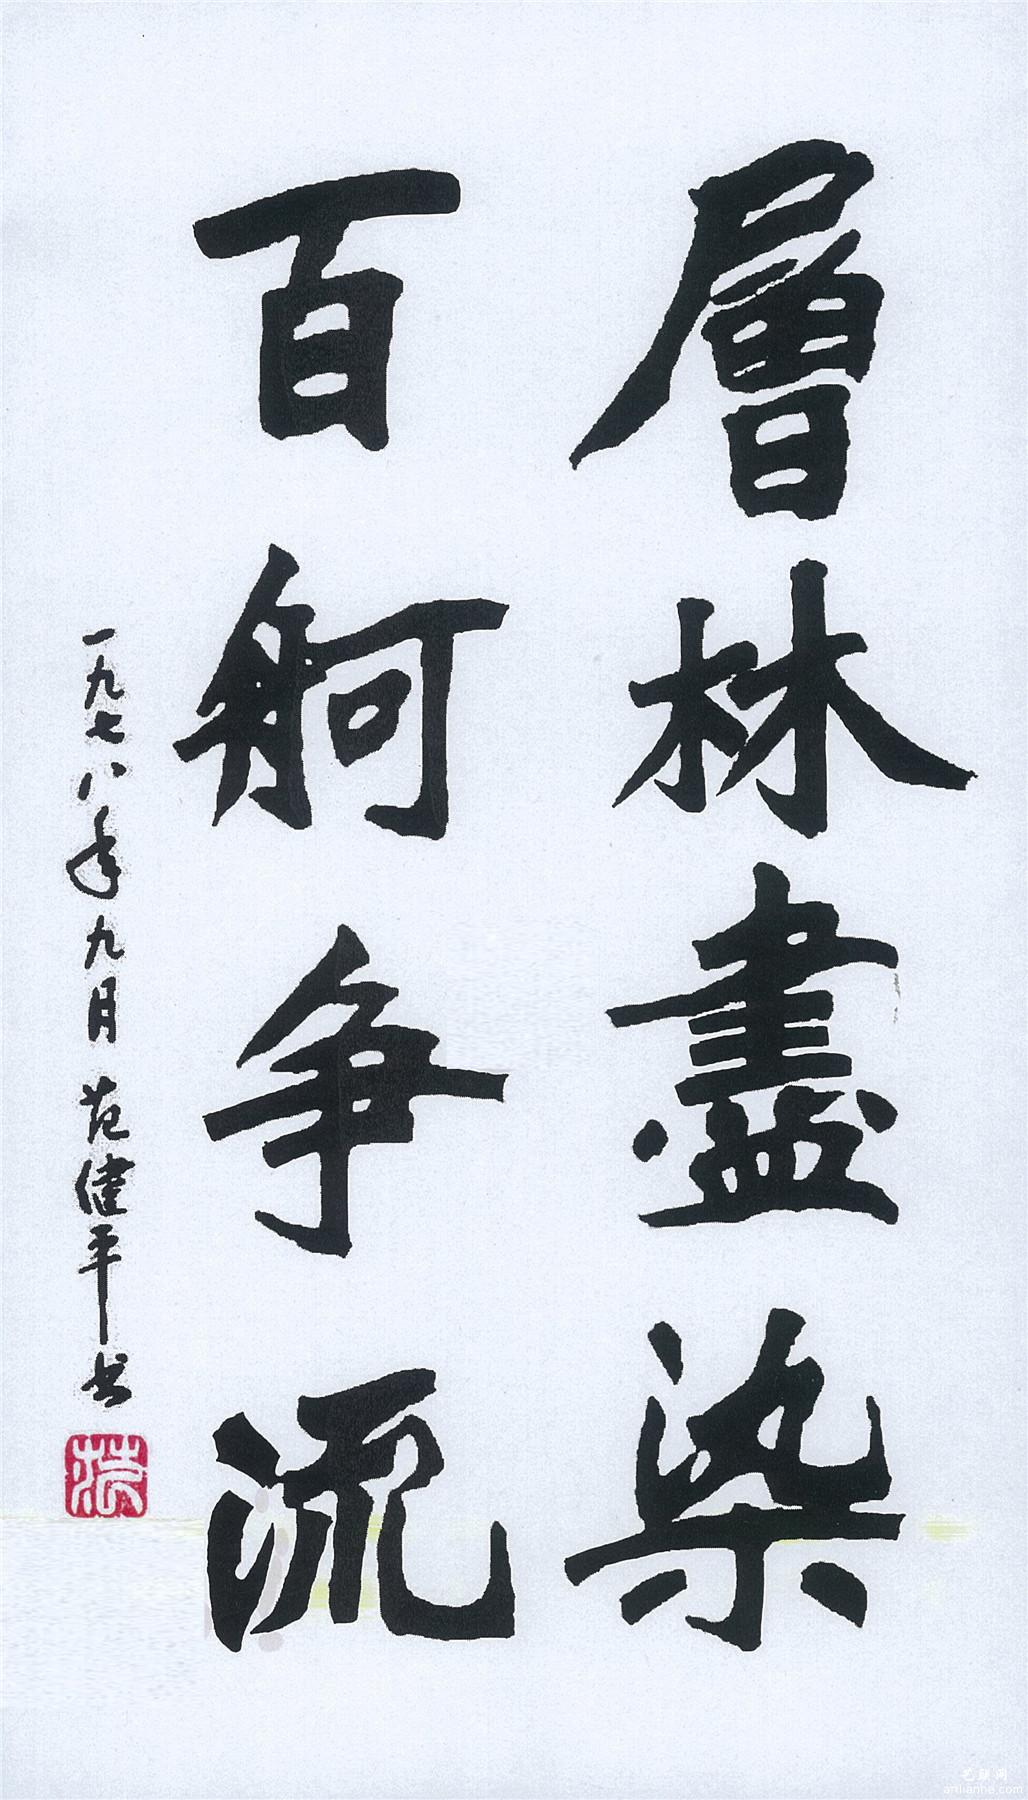 層林盡染
百舸争流
一九七八年九月 范健平书
艺联网
artlianhe.com